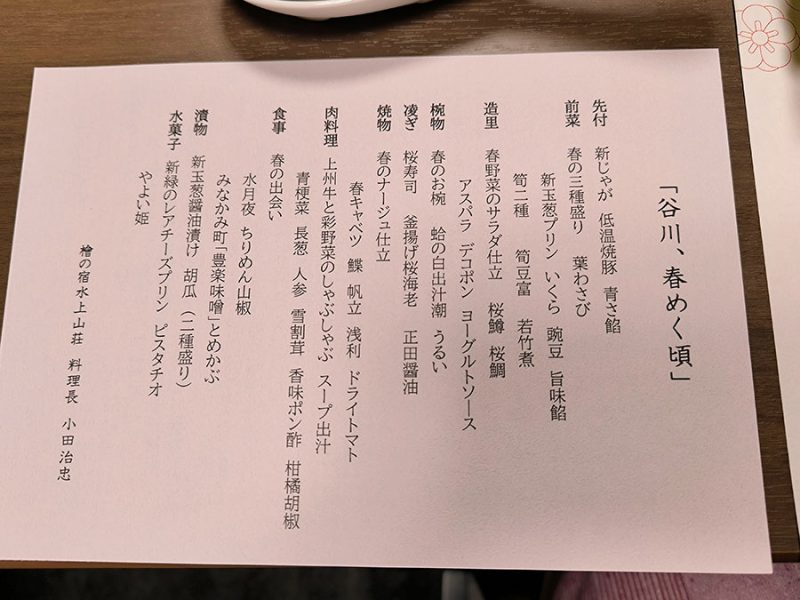 「谷川、春めく頃」
先付　新じゃが　低温焼豚　青さ餡
前菜　春の三種盛り　葉わさび
新玉葱プリン　いくら　豌豆　旨味餡
筍二種　筍豆富　若竹煮
造里　春野菜のサラダ仕立　桜鱒　桜鯛
アスパラ　デコポン　ヨーグルトソース
椀物　春のお椀　蛤の白出汁潮　うるい
凌ぎ　桜寿司　釜揚げ桜海老　正田醤油
焼物　春のナージュ仕立
春キャベツ　鰈　帆立　浅利　ドライトマト
肉料理　上州牛と彩野菜のしゃぶしゃぶ　スープ出汁
青梗菜　長葱　人参　雪割茸　香味ポン酢　柑橘胡椒
食事　春の出会い
水月夜　ちりめん山椒
みなかみ町「豊楽味噌」とめかぶ
漬物　新玉葱醤油漬け　胡瓜　（二種盛り）
水菓子　新緑のレアチーズプリン　ピスタチオ
やよい姫
檜の宿水上山荘　料理長　小田治忠